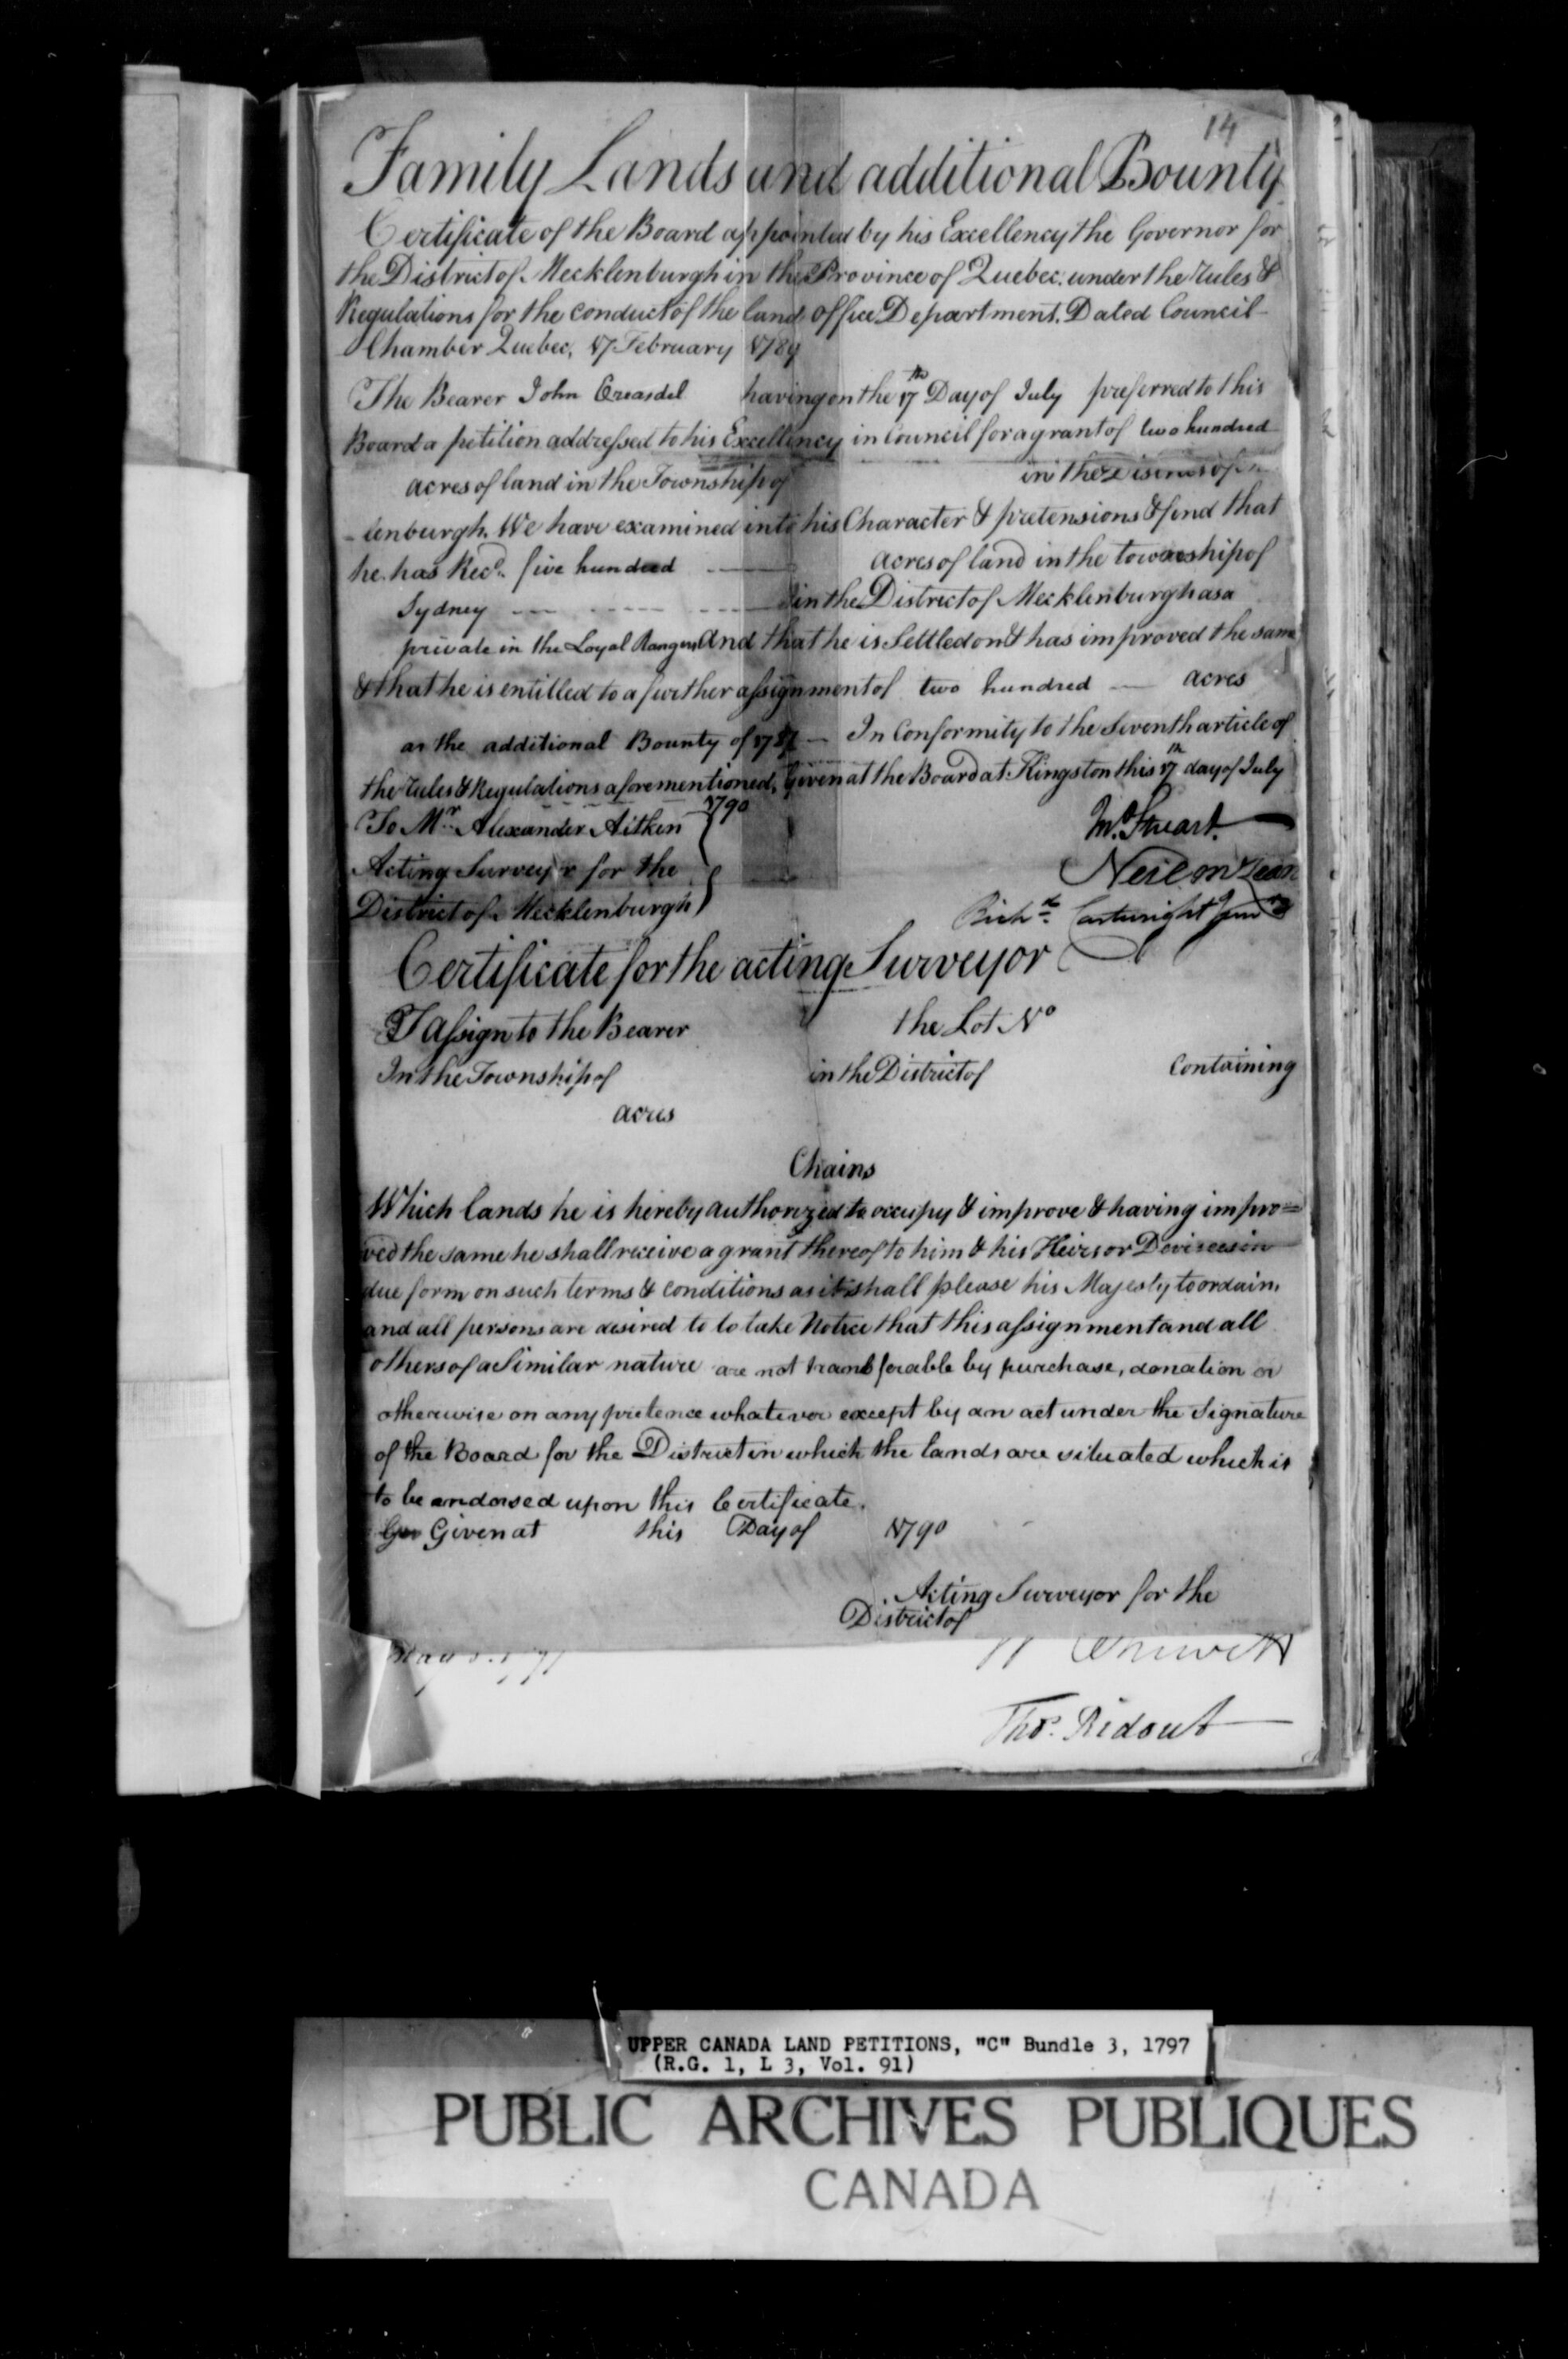 14
Family Lands and additional Bounty
Certificate of the Board appointed by his Excellency the Governor for
the District of Mecklenburgh in the Province of Quebec. under the rules &
Regulations for the conduct of the land office Department. Dated Council
Chamber Quebec, 17 February 1789
The Bearer John having on the 17th Day of July preferred to this
Board a petition addressed to his Excellency in Council for a grant of two hundred
acres of land in the Township of in the District of
lenburgh. We have examined into his Character & pretensions & find that
he has Recd. five hundred — acres of land in the township of
Sydney --- in the District of Mecklenburgh as a
private in the Loyal Rangers And that he is Settled on & has improved the same
& that he is entitled to a further assignment of two hundred — acres
as the additional Bounty of 1787 — In Conformity to the Seventh article of
the rules & Regulations aforementioned, Given at the Board at Kingston this 17th day of July
1790
To Mr. Alexander Aitken
Acting Surveyor for the
District of Mecklenburgh
Stuart.
Neil McLean
Richd. Cartwright Junr
Certificate for the acting Surveyor
I assign to the Bearer the Lot No
In the Township of in the District of Containing
acres
Chains
Which lands he is hereby authorized to occupy & improve & having impro=
ved the same he shall receive a grant thereof to him & his Heirs or Devisees in
due form on such terms & conditions as it shall please his Majesty to ordain,
and all persons are desired to to take Notice that this assignment and all
others of a Similar nature are not transferable by purchase, donation or
otherwise on any pretence whatever except by an act under the Signature
of the Board for the District in which the lands are situated which is
to be endorsed upon this Certificate.
Given at this Day of 1790
Acting Surveyor for the
District of
W Chewett
Thos. Ridout
UPPER CANADA LAND PETITIONS, "C" Bundle 3, 1797
(R.G. 1, L 3, Vol. 91)
PUBLIC ARCHIVES PUBLIQUES
CANADA